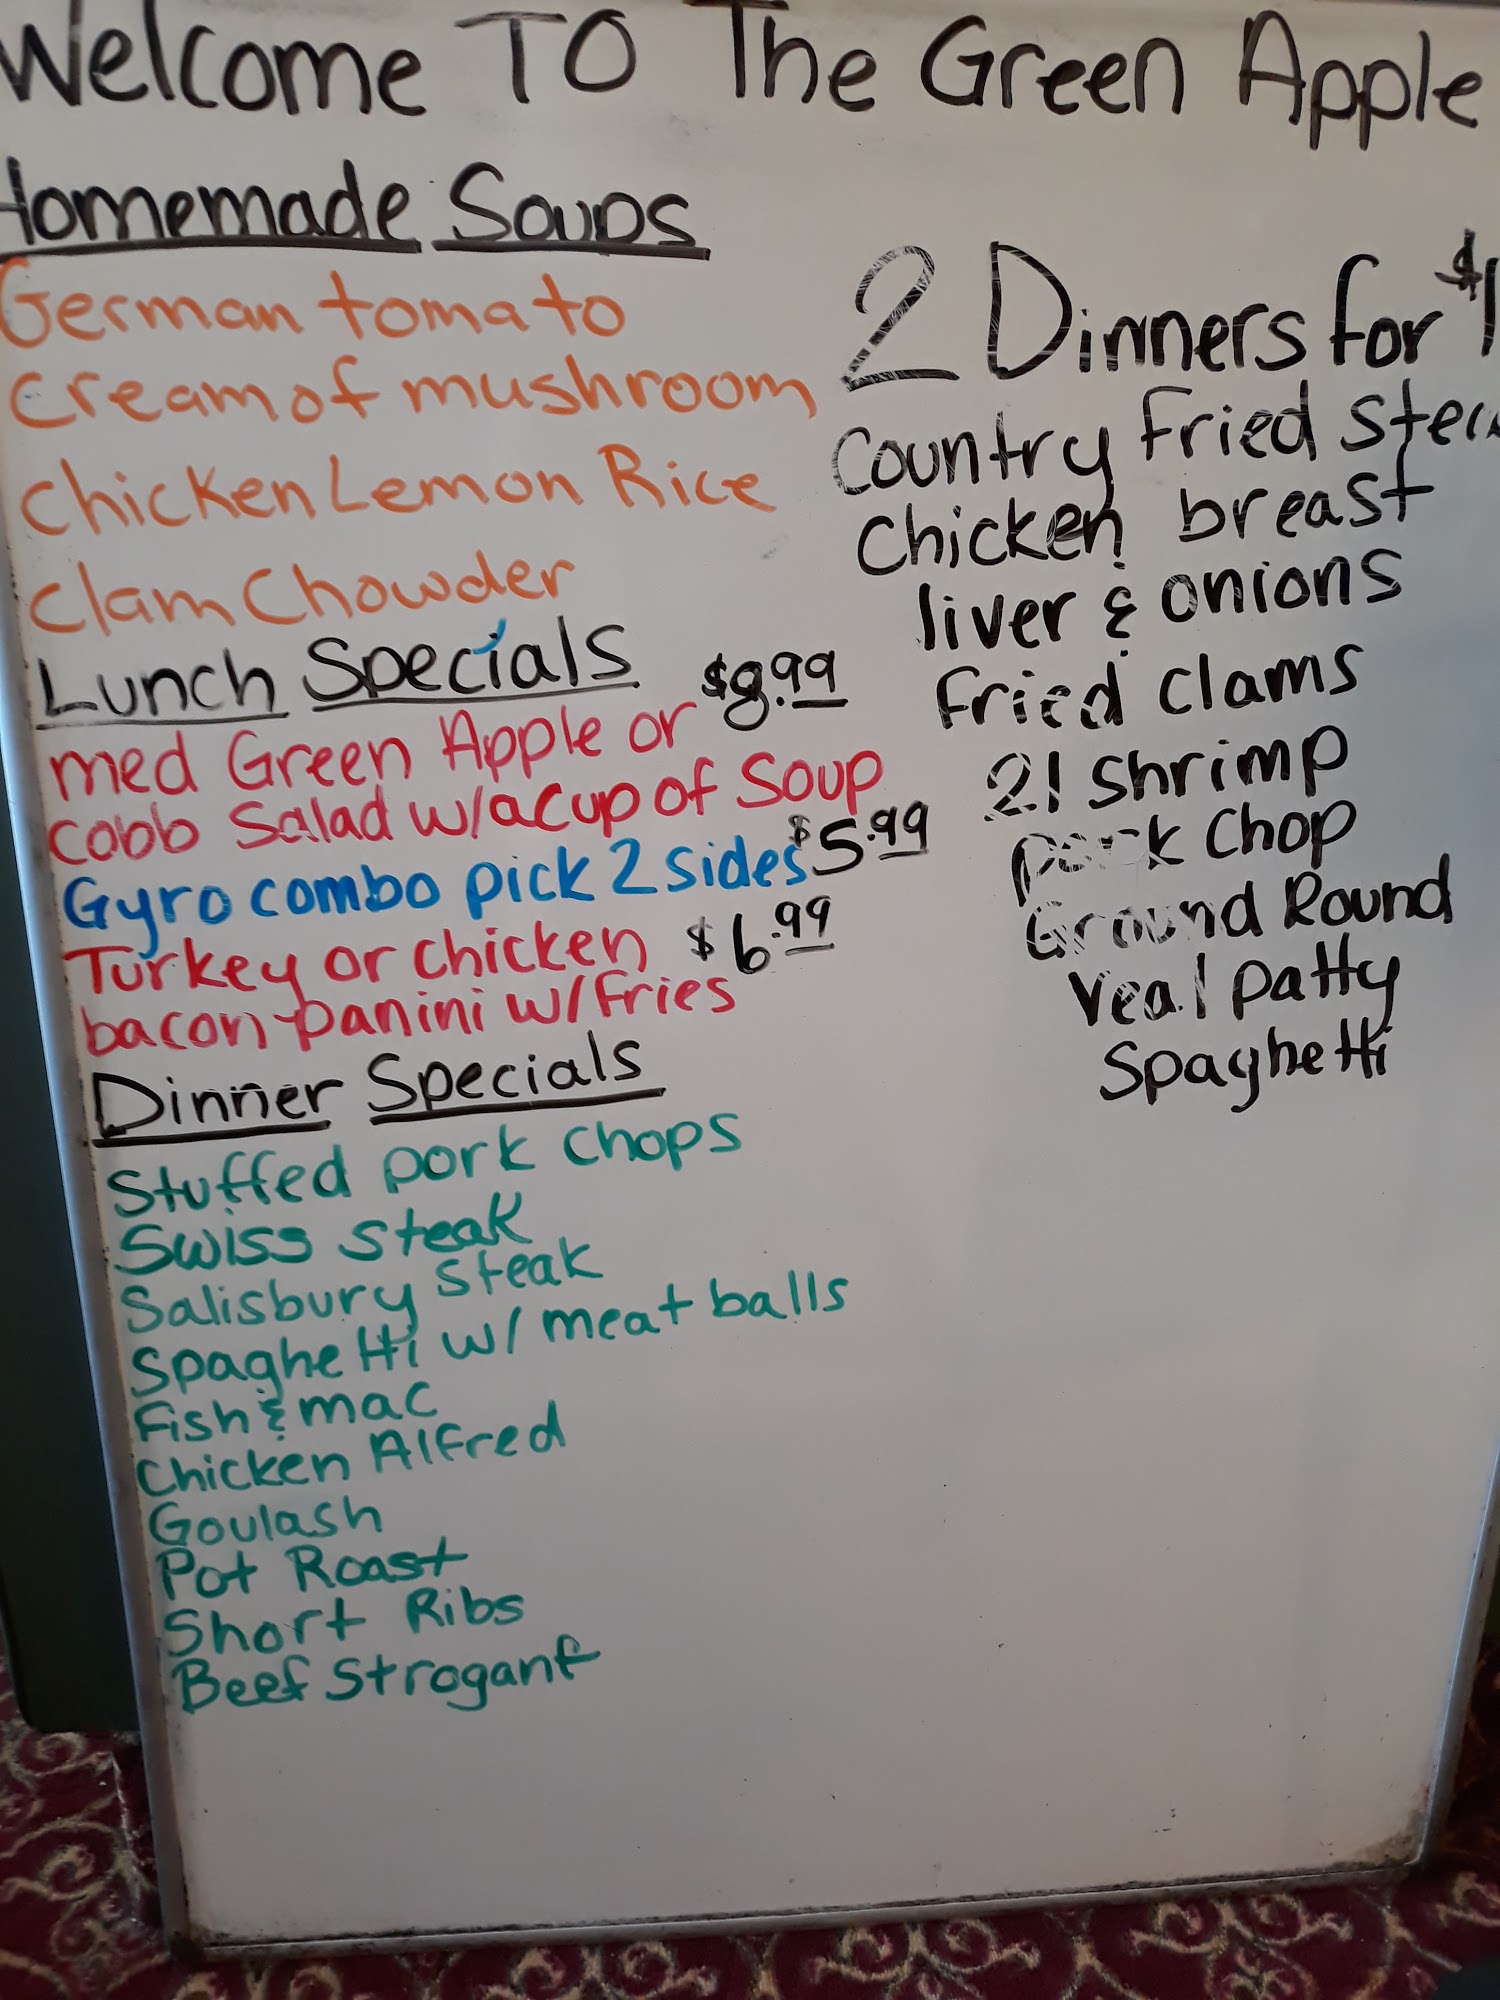 Welcome TO The Green Apple
Homemade Soups
German tomato
cream of mushroom
Chicken Lemon Rice
Clam Chowder
Lunch Specials
med Green Apple or $8.99
cobb Salad w/a cup of Soup
Gyro combo pick 2 sides $5.99
Turkey or chicken $6.99
bacon panini w/fries
Dinner Specials
Stuffed pork chops
Swiss steak
Salisbury steak
Spaghetti w/ meat balls
Fish & mac
Chicken Alfred
Goulash
Pot Roast
Short Ribs
Beef Stroganf
2 Dinners for $1
Country Fried
Chicken breast
liver & onions
Fried clams
21 shrimp
pork chop
Ground Round
Veal patty
Spaghetti